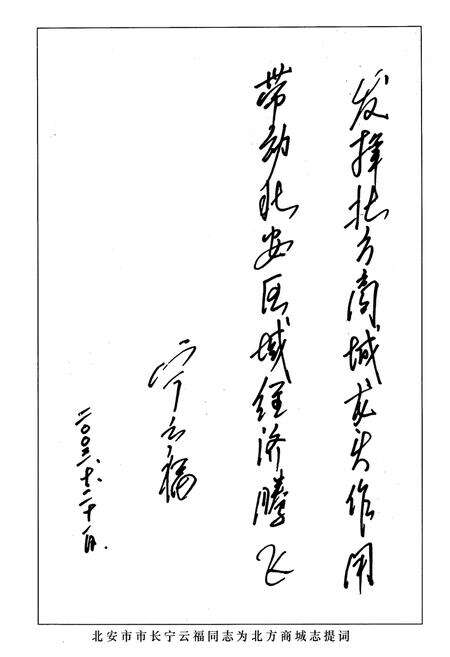 发挥北方商城龙头作用
带动北安区域经济腾飞
宁云福
二〇〇三、十、二十一日.
北安市市长宁云福同志为北方商城志提词